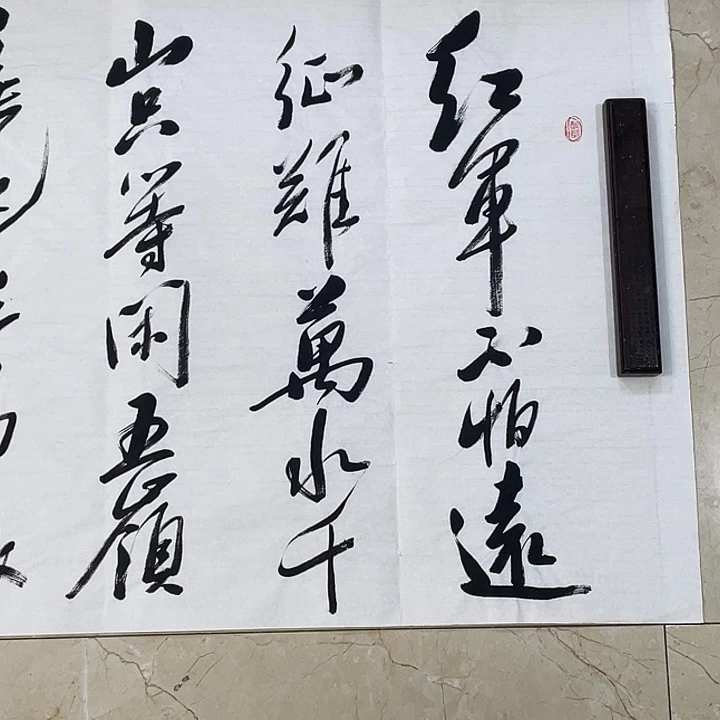 红軍不怕遠
征難萬水千
山只等闲五嶺